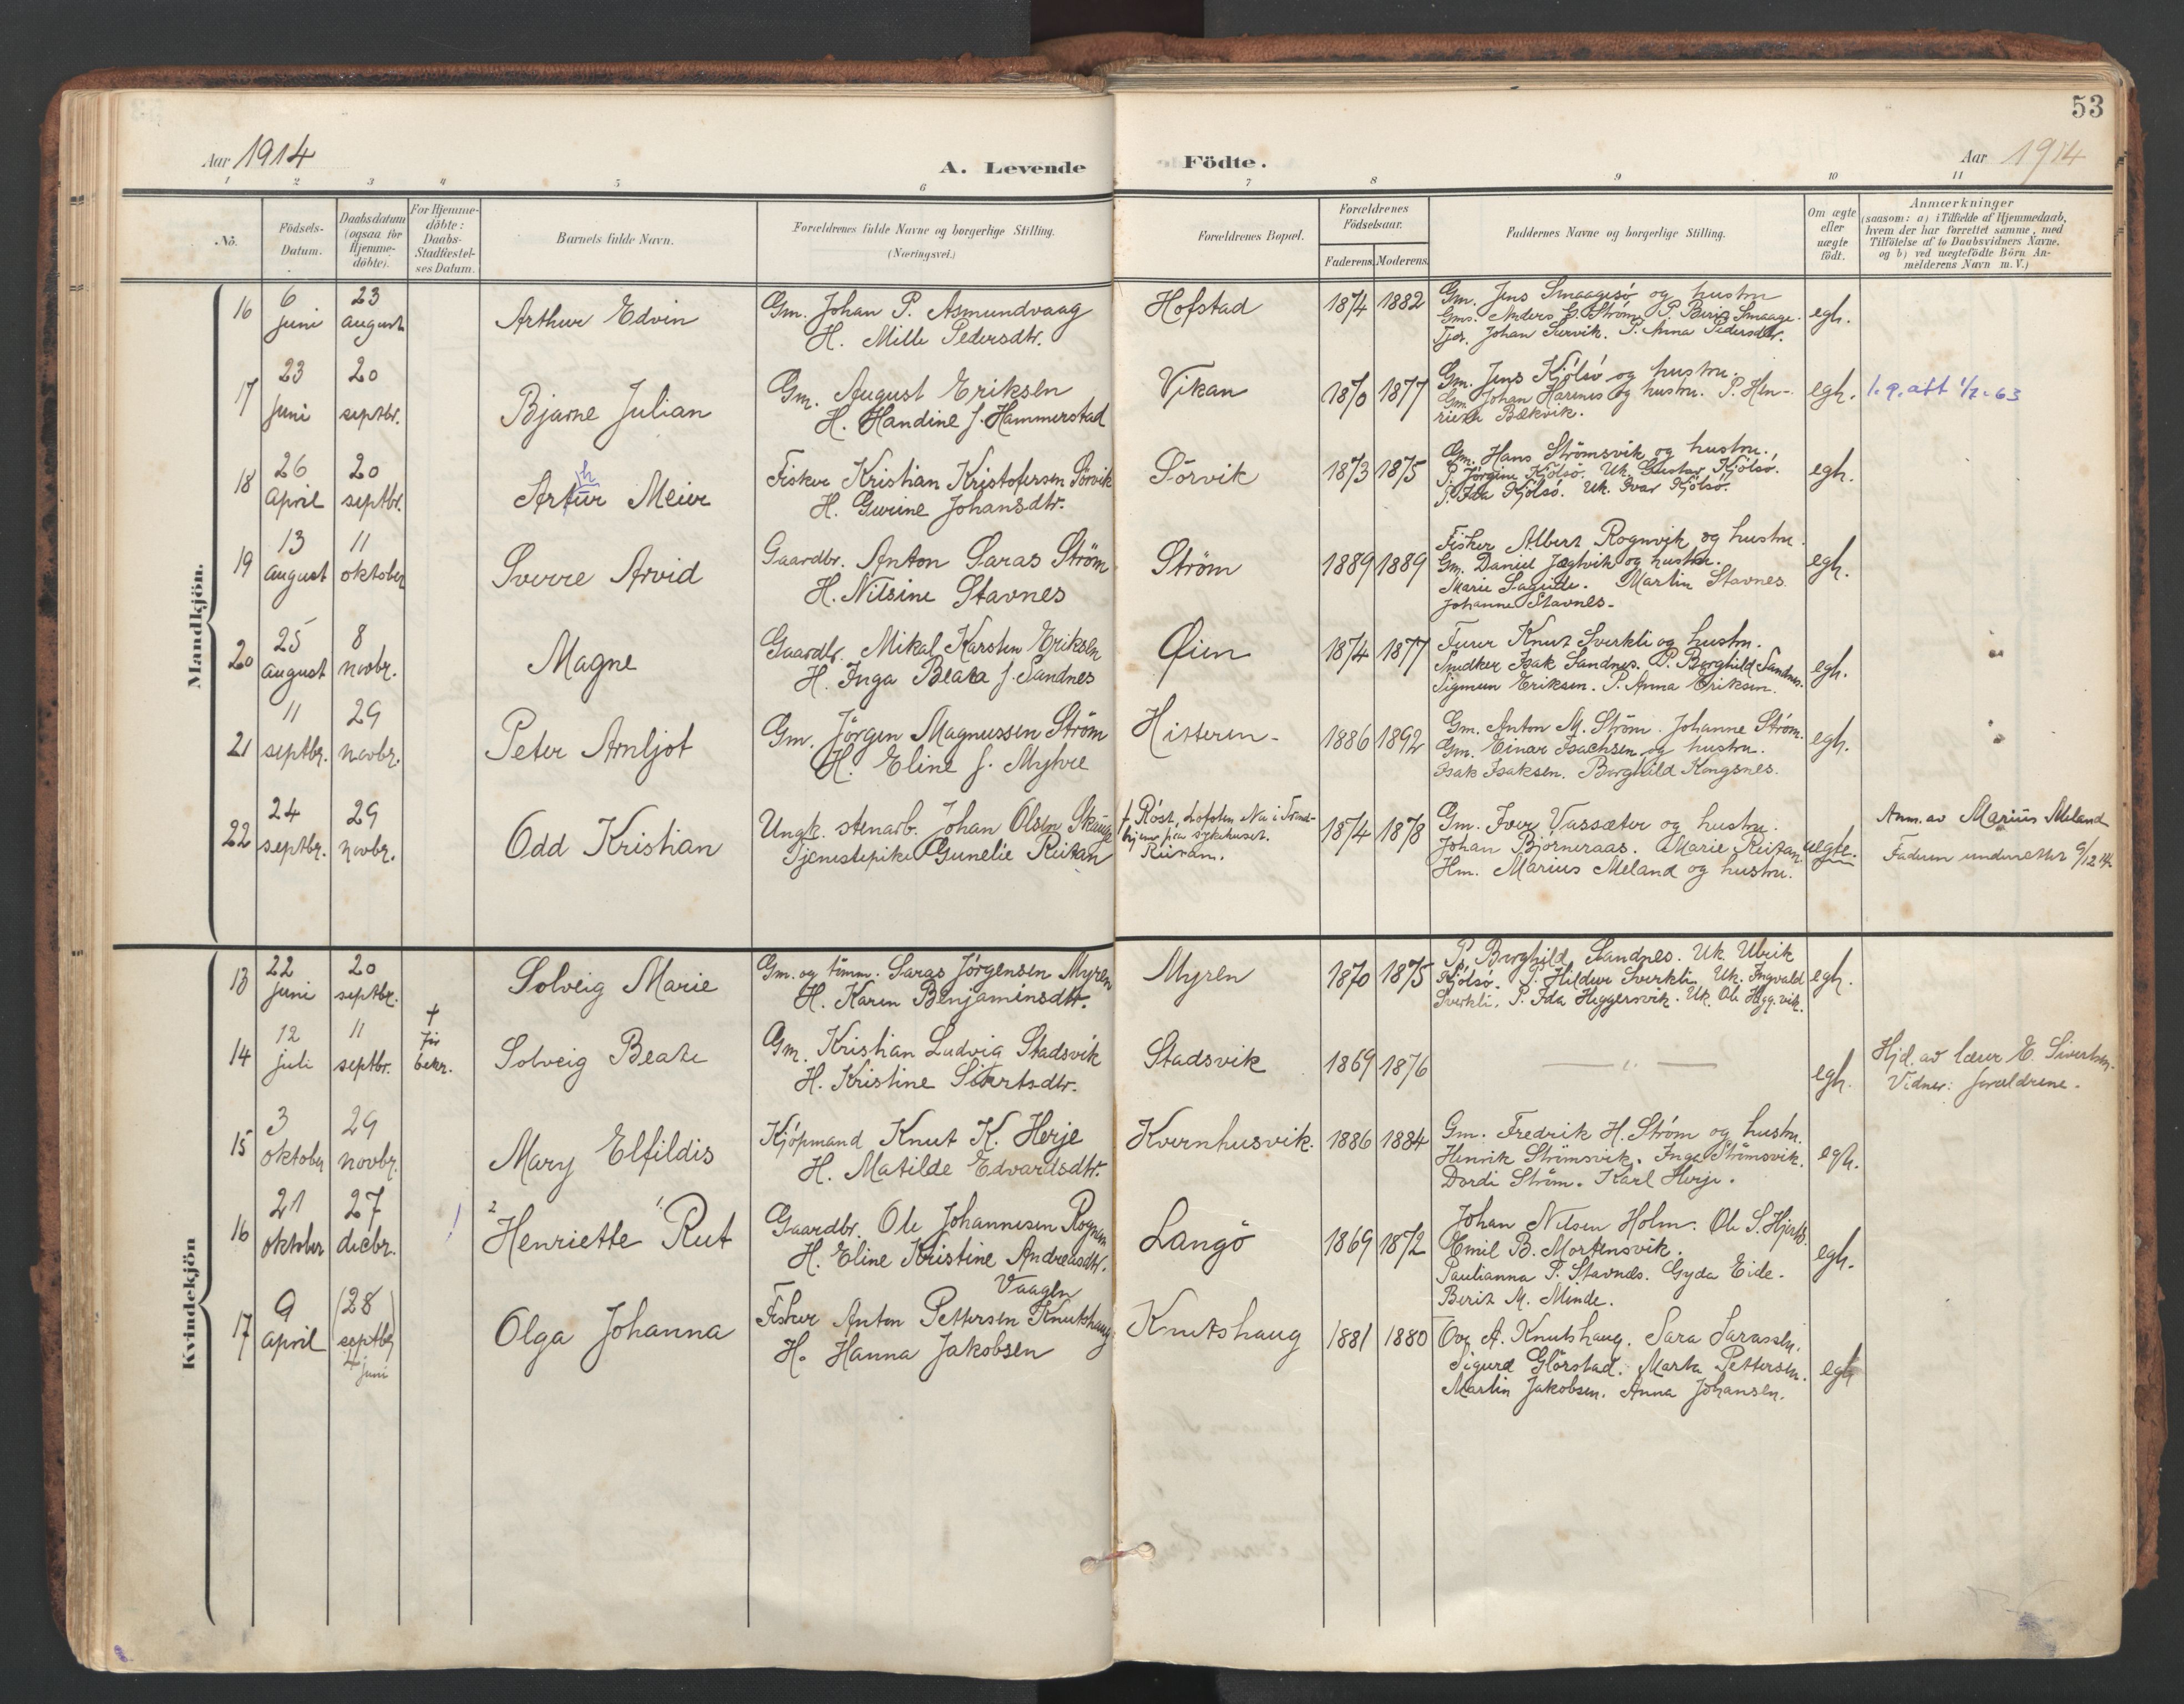 53
Aar 1914
A. Levende
Födte.
Aar 1914
1 2 3 4 5 6 7 8 9 10 11
No.
Födsels-Datum.
Daabsdatum (ogsaa for Hjemme-döbte).
For Hjemme-döbte: Daabs-Stadfæstel-ses Datum.
Barnets fulde Navn.
Forældrenes fulde Navne og borgerlige Stilling.
(Næringsvei.)
Forældrenes Bopæl.
Forældrenes Födselsaar.
Faderens. Moderens.
Faddernes Navne og borgerlige Stilling.
Om ægte eller uægte födt.
Anmærkninger
(saasom: a) i Tilfælde af Hjemmedaab,
hvem der har forrettet samme, med
Tilföielse af to Daabsvidners Navne,
og b) ved uægtefödte Börn An-
melderens Navn m. V.)
Mandkjön.
16 6 juni 23 august Arthur Edvin
Gm. Johan P. Asmundvaag
H. Mille Pedersdtr.
Hofstad 1874 1882
Gm. Jens Smaagesø og hustru
Gms. Anders G. Strøm. P. Berit Smaage.
Tjgr. Johan Survik. P. Anna Pedersdtr.
egt.
17 23 juni 20 septbr. Bjarne Julian
Gm. August Eriksen
H. Handine f. Hammerstad
Vikan 1870 1877
Gm. Jens Kjölsö og hustru.
Gm. Johan Harenes og hustru. P. Hen-
riette Bækvik.
egt.
18 26 april 20 septbr. Arthur Meier
Fisker Kristian Kristofersen Sörvik
H. Gurine Johansdtr.
Sörvik 1873 1875
Gm. Hans Strömsvik og hustru.
P. Jörgine Kjölsö. Uk. Gustav Kjölsö.
P. Ida Kjölsö. Uk. Ivar Kjölsö.
egt.
19 13 august 11 oktober Sverre Arvid
Gaardbr. Anton Saras Ström
H. Nilsine Stavnes
Ström 1889 1889
Fisker Albert Rognvik og hustru.
Gm. Daniel Jægtvik og hustru.
Marie Sagude. Martin Stavnes
Johanne Stavnes.
egt.
20 25 august 8 novbr. Magne
Gaardbr. Mikal Karsten Eriksen
H. Inga Beata f. Sandnes
Øien 1874 1877
Furer Knut Sverkli og hustru.
Snedker Isak Sandnes. P. Borghild Sandnes.
Sigmun Eriksen. P. Anna Eriksen.
egt.
21 11 septbr. 29 novbr. Peter Arnljot
Gm. Jörgen Magnussen Ström
H. Eline f. Myhre
Hitteren 1886 1892
Gm. Anton M. Ström. Johanne Ström.
Gm. Einar Isachsen og hustru.
Isak Isaksen. Borghild Kongsnes.
egt.
22 24 septbr. 29 novbr. Odd Kristian
Ungk. stenarb. Johan Olsen Skauge
Tjenestepike Gunelie Riikan
f. Röst, Lofoten Nu i Trond-
hjem paa sykehuset.
1874 1878
Gm. Iver Vassæter og hustru.
Johan Björneraas. Marie Riikan
Hm. Marius Meland og hustru.
uegte.
Anm. av Marius Meland
Faderen underrettet 9/12 14.
Kvindekjön
13 22 juni 20 septbr. Solveig Marie
Gm. og tömm. Saras Jörgensen Myren
H. Karen Benjaminsdtr.
Myren 1870 1875
P. Borghild Sandnes. Uk. Ulrik
Kjölsö. P. Hildur Sverkli. Uk. Ingvald
Sverkli. P. Ida Heggersvik. Uk. Ole Hegg.vik.
egt.
14 12 juli 11 septbr. † før bekr. Solveig Beate
Gm. Kristian Ludvig Stadsvik
H. Kristine Sivertsdtr.
Stadsvik 1869 1876
— " —
egt.
Hjd. av lærer E. Sivertsen.
Vidner: forældrene.
15 3 oktober 29 novbr. Mary Elfildis
Kjöpmand Knut K. Herje
H. Matilde Edvardsdtr.
Kvernhusvik. 1886 1884
Gm. Fredrik H. Ström og hustru.
Henrik Strömsvik. Inga Strömsvik.
Dordi Ström. Karl Herje.
egt.
16 21 oktober 27 decbr. Henriette Rut
Gaardbr. Ole Johannesen Rognen
H. Eline Kristine Andreasdtr.
Langö 1869 1872
Johan Nilsen Holm. Ole S. Hjertø.
Emil B. Mortensvik.
Paulianna P. Stavnes. Gyda Eide.
Berit M. Minde.
egt.
17 9 april (28 septbr) 4 juni Olga Johanna
Vaagen
Fisker Anton Pettersen Knutshaug
H. Hanna Jakobsen
Knutshaug 1881 1880
Ove A. Knutshaug. Sara Sarassen.
Sigurd Glörstad. Marta Pettersen.
Martin Jakobsen. Anna Johansen.
egt